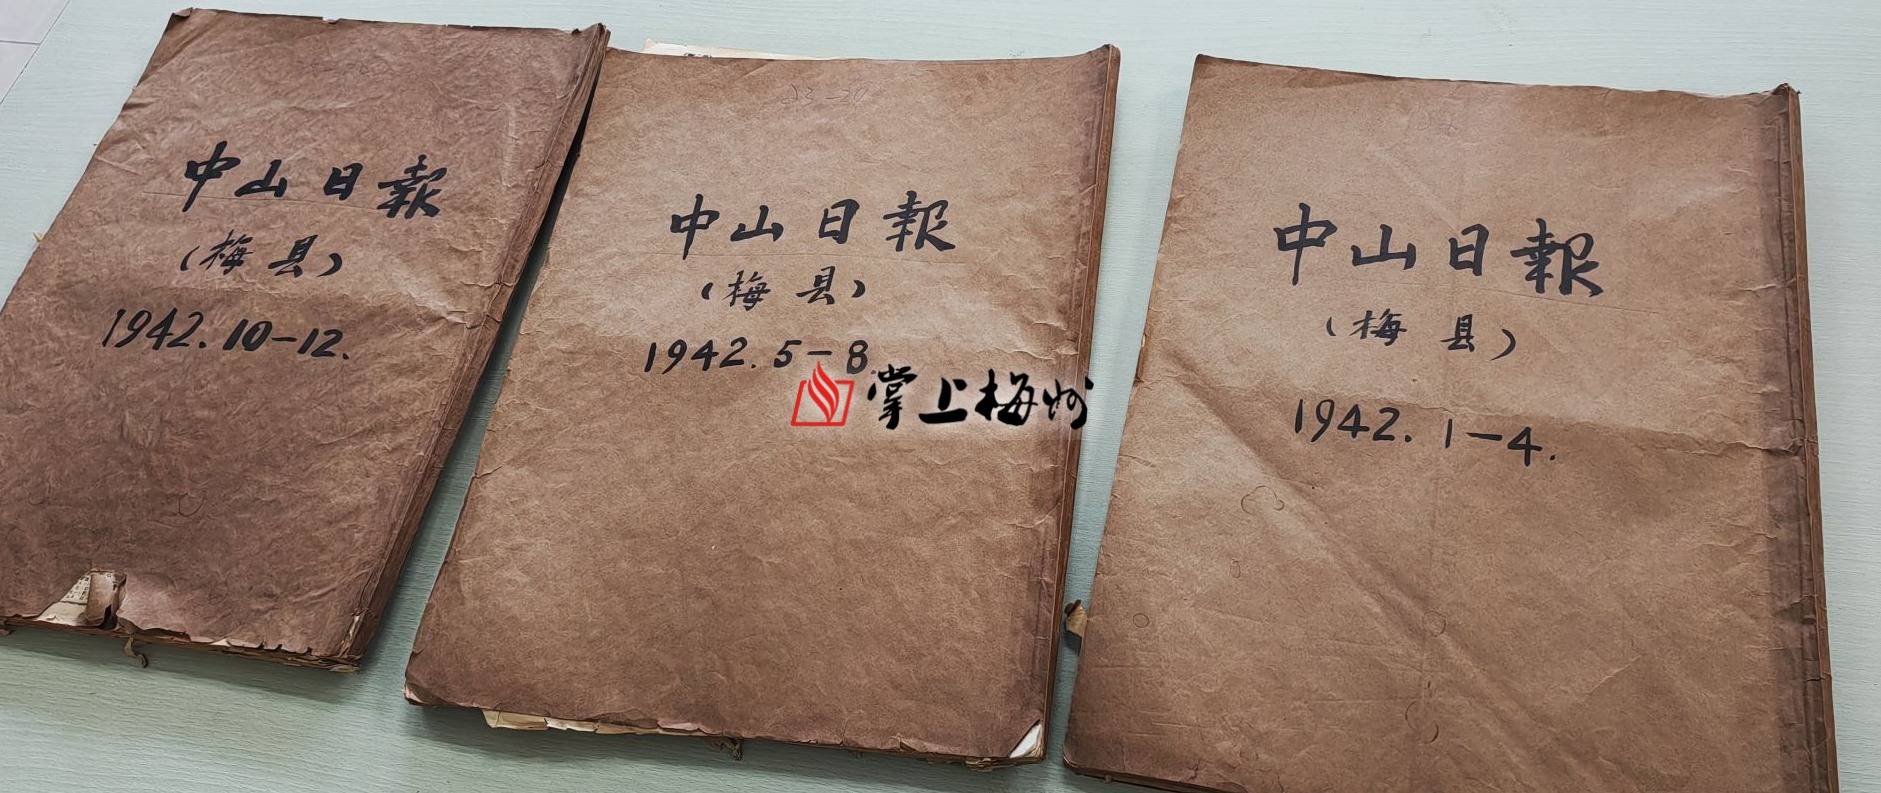 中山日報
（梅县）
1942.10-12.
中山日報
（梅县）
1942.5-8.
掌上梅州
中山日報
（梅县）
1942.1-4.